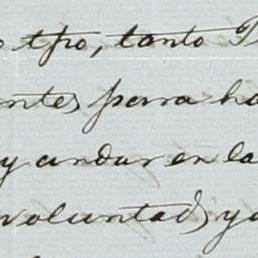 tpo, tanto
ntes para ha
y andar en la
voluntad, y